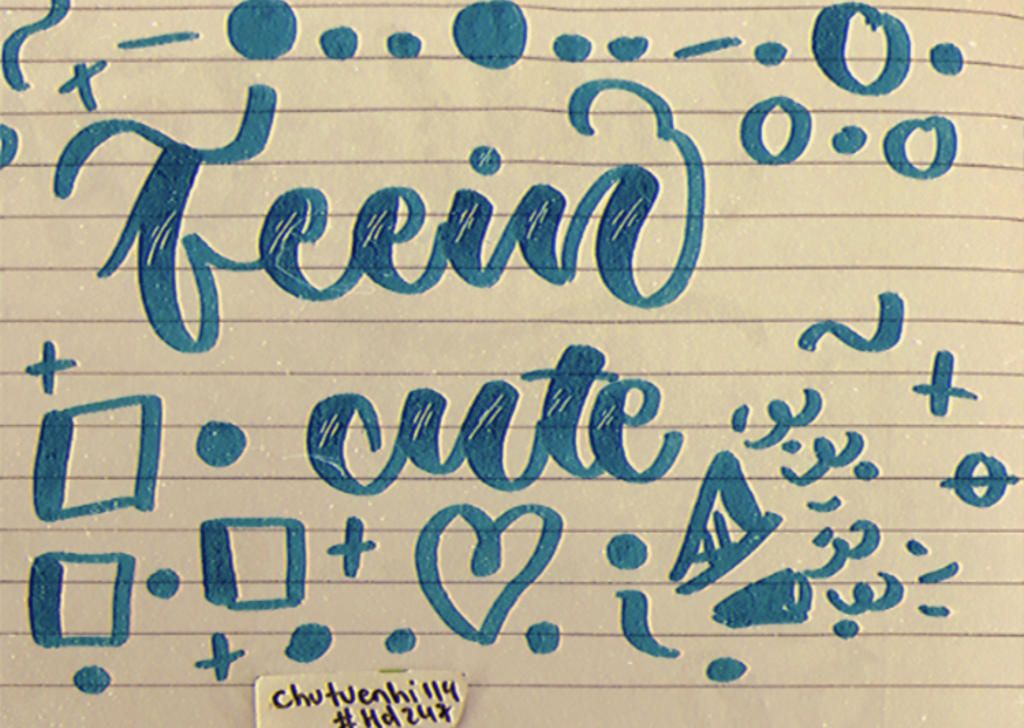 Feein
cute
chutuenhi114
#Hd247